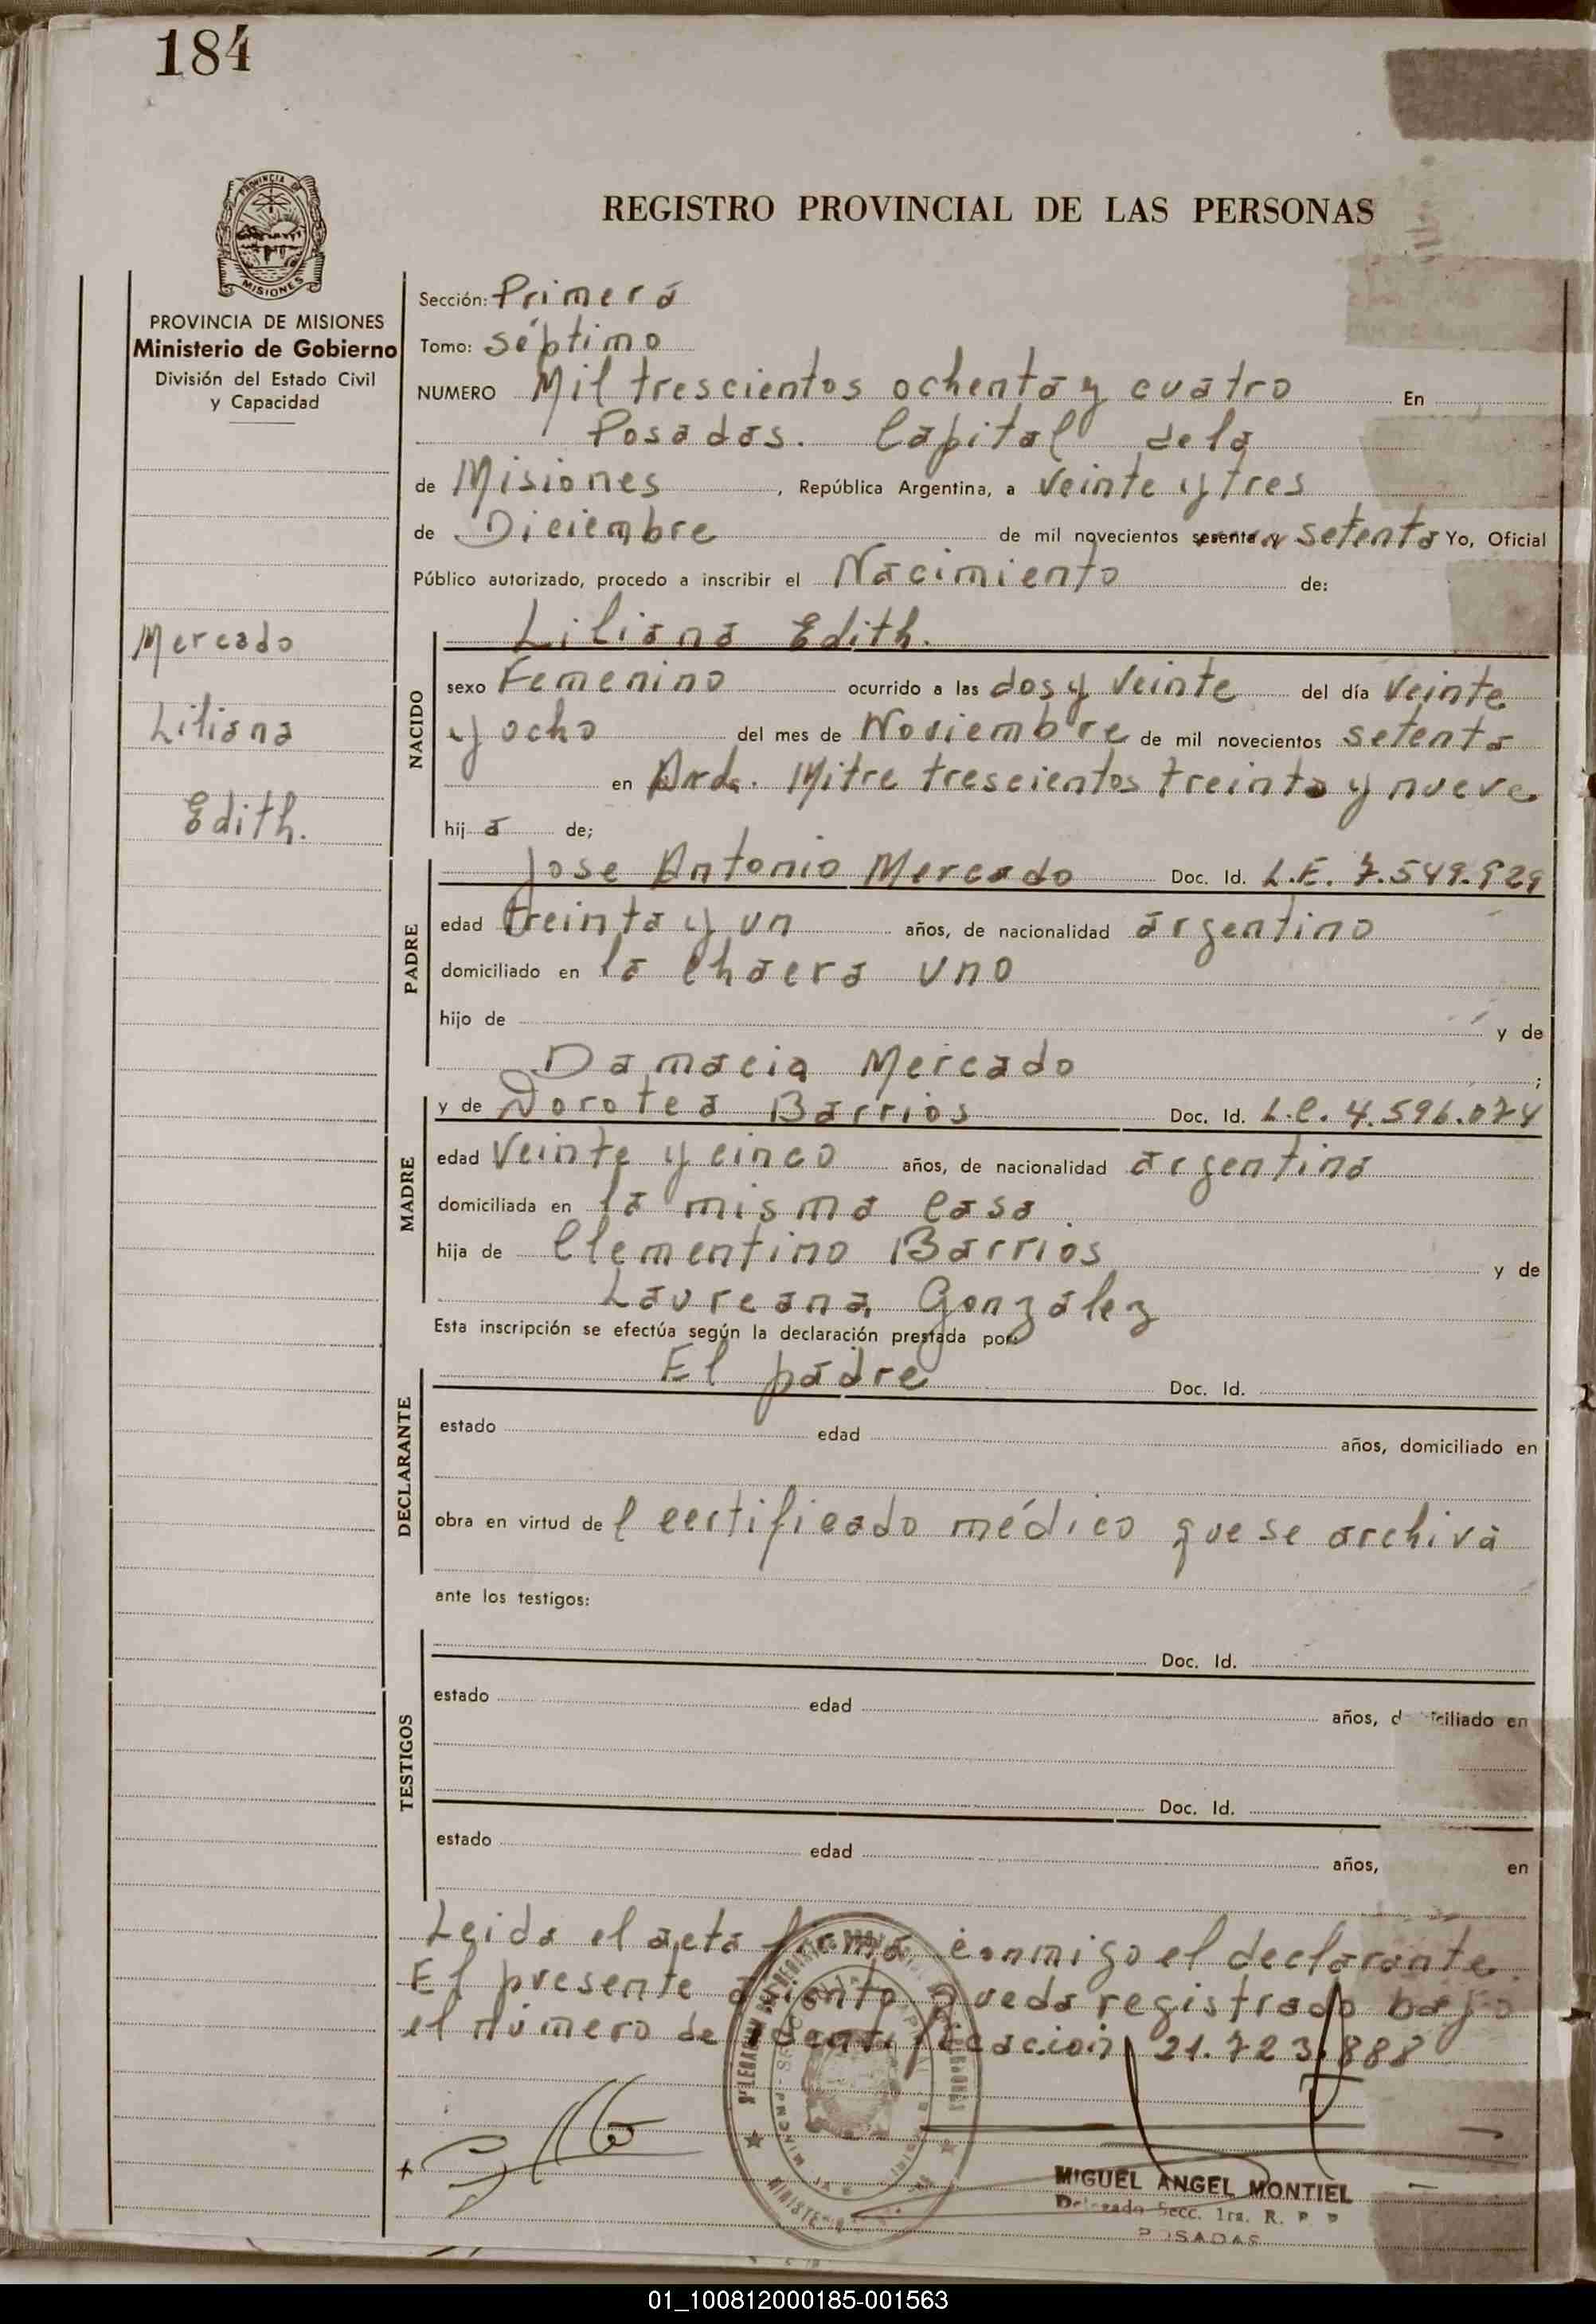 184
PROVINCIA DE
MISIONES
REGISTRO PROVINCIAL DE LAS PERSONAS
PROVINCIA DE MISIONES
Ministerio de Gobierno
División del Estado Civil
y Capacidad
Mercado
Liliana
Edith.
Sección: Primera
Tomo: séptimo
NUMERO Mil trescientos ochenta y cuatro En
Posadas. Capital de la
de Misiones, República Argentina, a Veinte y tres
de Diciembre de mil novecientos sesenta y setenta Yo, Oficial
Público autorizado, procedo a inscribir el Nacimiento de:
NACIDO
Liliana Edith.
sexo Femenino ocurrido a las dos y Veinte del día Veinte
y ocho del mes de Noviembre de mil novecientos setenta
en Avda. Mitre trescientos treinta y nueve
hij a de;
PADRE
Jose Antonio Mercado Doc. Id. L.E. 7.549.929
edad treinta y un años, de nacionalidad argentino
domiciliado en la chacra uno
hijo de y de
Damacia Mercado ;
MADRE
y de Dorotea Barrios Doc. Id. L.C. 4.596.074
edad Veinte y cinco años, de nacionalidad argentina
domiciliada en la misma casa.
hija de Clementino Barrios y de
Laureana González
Esta inscripción se efectúa según la declaración prestada por:
DECLARANTE
El padre Doc. Id.
estado edad años, domiciliado en
obra en virtud de l certificado médico que se archiva
ante los testigos:
TESTIGOS
Doc. Id.
estado edad años, iciliado en
Doc. Id.
estado edad años, en
Leida el acta firma conmigo el declarante.
El presente asiento queda registrado bajo
el número de identificacion 21.723.888
MIGUEL ANGEL MONTIEL
Delegado Secc. 1ra. R. P. P
POSADAS
01_100812000185-001563